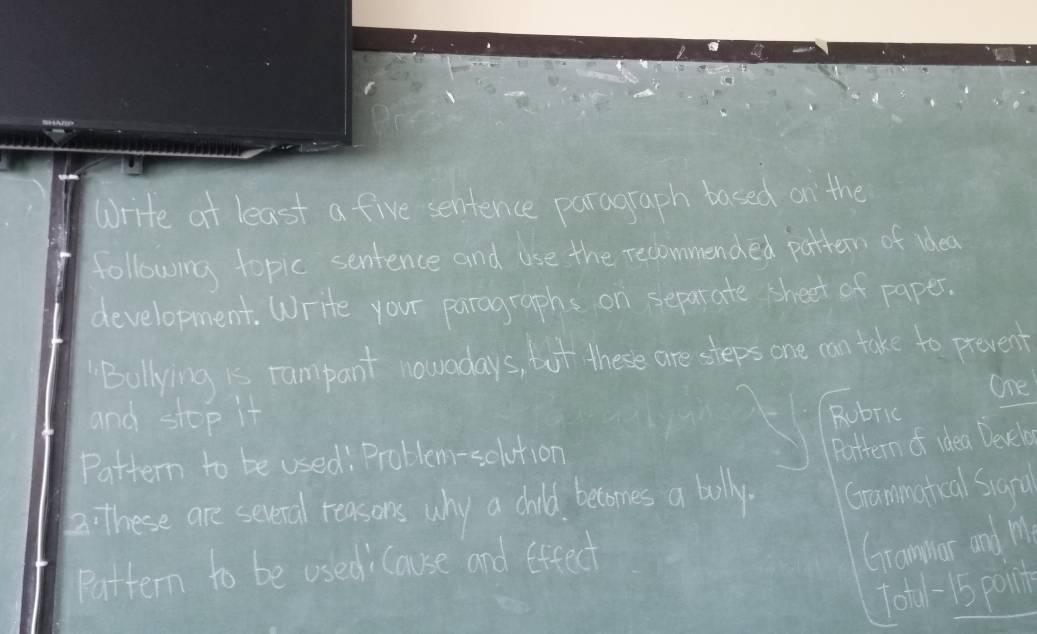 SHARP
Write at least a five sentence paragraph based on the
following topic sentence and use the recommended pattern of idea
development. Write your paragraphs on separate sheet of paper.
"Bullying is rampant nowadays, but these are steps one can take to prevent
and stop it
Pattern to be used: Problem-solution
2. These are several reasons why a child becomes a bully.
Pattern to be used: Cause and Effect
One
Rubric
Pattern of idea Develo
Grammatical Signal
Grammar and Me
Total - 15 points